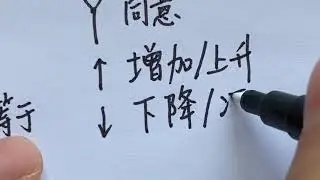 Y 同意
↑ 增加/上升
等于
↓ 下降/